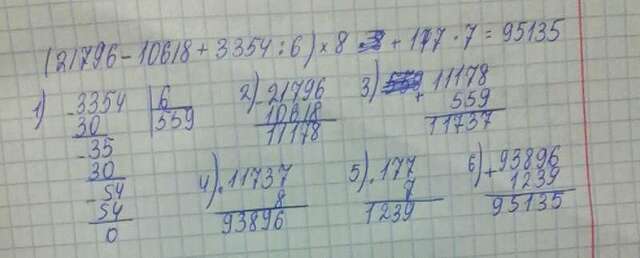 (21796-10618+3354:6)×8+177·7=95135
1) -3354 | 6
30 | 559
-35
30
-54
54
0
2) -21796
10618
11178
3) +11178
559
11737
4) ·11737
8
93896
5) ·177
7
1239
6) +93896
1239
95135